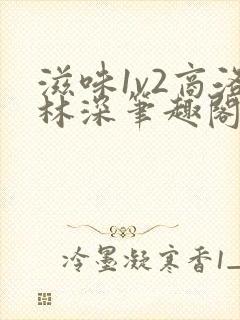 滋味1v2高洛
林深笔趣阁
冷墨凝寒香1_